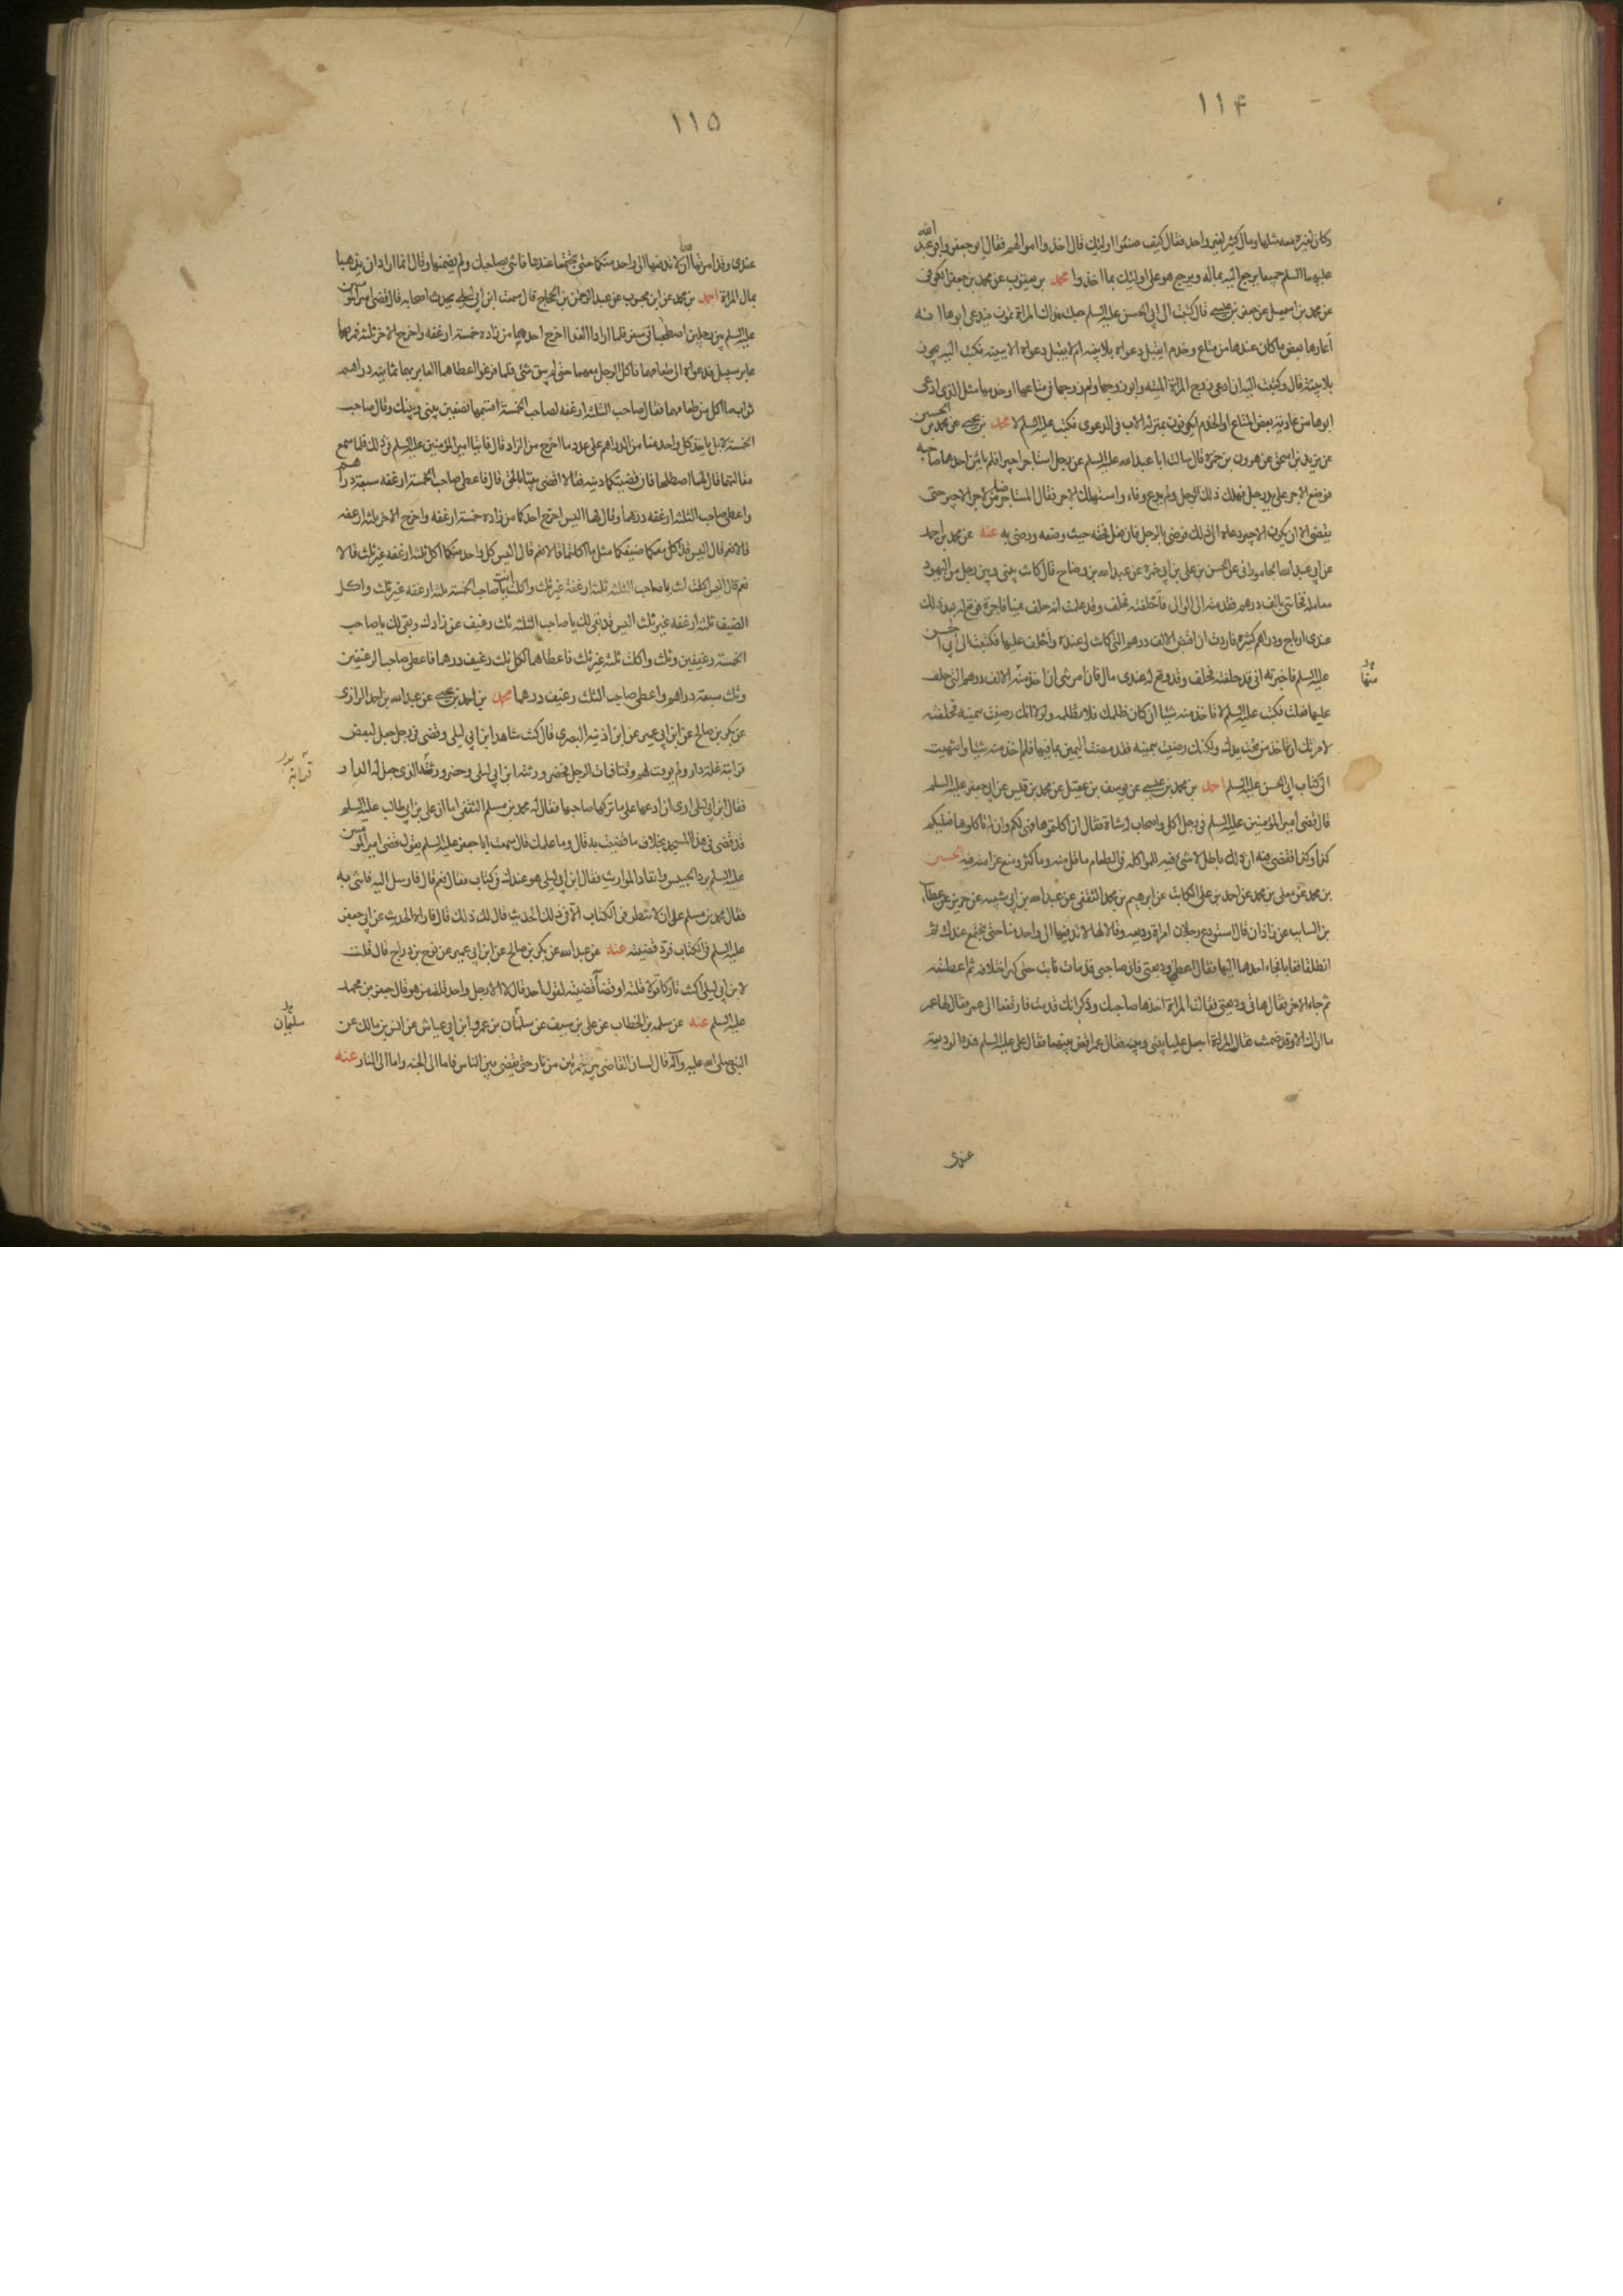 ١١۴
وكان لغيره معه مثلها ومال كثير لغير واحد فقال كيف صنعوا اولئك قال اخذوا اموالهم فقال ابو جعفر وابو عبد الله
عليهما السلم جميعا يرجع اليه بماله ويرجع هو على اولئك بما اخذوا محمد بن يعقوب عن محمد بن جعفر الكوفى
عن محمد بن اسمعيل عن جعفر بن عيسى قال كتبت الى ابى الحسن عليه السلم جعلت فداك المراة تموت فيدعى ابوها انه
اعارها بعض ما كان عندها من متاع وخدم ايقبل دعواه بلا بينه ام لا يقبل دعواه الا ببينه فكتب اليه يجوز
بلا بينة قال وكتبت اليه ان ادعى زوج المراة الميتة وابو زوجها وام زوجها فى متاعها او خدمها مثل الذى ادعى
ابوها من عارية بعض المتاع او الخدم ايكونون بمنزلة الاب فى الدعوى فكتب عليه السلم لا محمد بن يحيى عن محمد بن الحسين
عن يزيد بن اسحق عن هرون بن حمزة قال سالت ابا عبد الله عليه السلم عن رجل استاجر اجيرا فلم يامن احدهما صاحبه
فوضع الاجر على يد رجل فهلك ذلك الرجل ولم يدع وفاء واستهلك الاجر فقال المستاجر ضامن لاجر الاجير حتى
يقضى الا ان يكون الاجير دعاه الى ذلك فرضى بالرجل فان فعل فحقه حيث وضعه ورضى به عنه عن محمد بن احمد
عن ابى عبد الله الجامورانى عن الحسن بن على بن ابى حمزة عن عبد الله بن وضاح قال كانت بينى وبين رجل من اليهود
معاملة فخاننى بالف درهم فقدمته الى الوالى فاحلفته فحلف وقد علمت انه حلف يمينا فاجرة فوقع له بعد ذلك
عندى ارباح ودراهم كثيرة فاردت ان اقتص الالف درهم التى كانت لى عنده واحلف عليها فكتبت الى ابى الحسن
عليه السلم فاخبرته انى قد حلفته فحلف وقد وقع له عندى مال فان امرتنى ان اخذ منه الالف درهم التى حلف
عليها فعلت فكتب عليه السلم لا تاخذ منه شيئا ان كان ظلمك فلا تظلمه ولولا انك رضيت بيمينه فحلفته
لامرتك ان تاخذ من تحت يدك ولكنك رضيت بيمينه فقد مضت اليمين بما فيها فلم اخذ منه شيئا وانتهيت
الى كتاب ابى الحسن عليه السلم احمد بن محمد بن عيسى عن يوسف بن عقيل عن محمد بن قيس عن ابى جعفر عليه السلم
قال قضى امير المؤمنين عليه السلم فى رجل اكل واصحاب له شاة فقال ان اكلتموها فهى لكم وان لم تاكلوها فعليكم
كذا وكذا فقضى فيه ان ذلك باطل لا شئ فيه للمواكلة فى الطعام ما قل منه وما كثر ومنع غرامته فيه الحسين
بن محمد عن معلى بن محمد عن احمد بن على الكاتب عن ابرهيم بن محمد الثقفى عن عبد الله بن ابى شيبه عن حريز عن عطاء
بن السايب عن زاذان قال استودع رجلان امراة وديعه وقالا لها لا تدفعيها الى واحد منا حتى نجتمع عندك ثم
انطلقا فغابا فجاء احدهما اليها فقال اعطينى وديعتى فان صاحبى قد مات فابت حتى كثر اختلافه ثم اعطته
ثم جاء الاخر فقال هاتى وديعتى فقالت المراة اخذها صاحبك وذكر انك قد مت فارتفعا الى عمر فقال لها عمر
ما اراك الا وقد ضمنت فقالت المراة اجعل عليا بينى وبينه فقال عمر اقض بينهما فقال على عليه السلم هذه الوديعة
عندى
منها
١١۵
عندى وقد امرتماها ان لا تدفعها الى واحد منكما حتى تجتمعا عندها فائتنى بصاحبك ولم يضمنها وقال انما ارادا ان يذهبا
بمال المراة احمد بن محمد عن ابن محبوب عن عبد الرحمن بن الحجاج قال سمعت ابن ابى ليلى يحدث اصحابه قال قضى امير المؤمنين
عليه السلم بين رجلين اصطحبا فى سفر فلما ارادا الغدا اخرج احدهما من زاده خمسة ارغفه واخرج الاخر ثلثه فمر بهما
عابر سبيل فدعواه الى طعامهما فاكل الرجل معهما حتى لم يبق شئ فلما فرغوا اعطاهما العابر بهما ثمانيه دراهم
ثواب ما اكل من طعامهما فقال صاحب الثلثه ارغفه لصاحب الخمسة اقسمها نصفين بينى وبينك وقال صاحب
الخمسة لا بل ياخذ كل واحد منا من الدراهم على عدد ما اخرج من الزاد قال فاتيا امير المؤمنين عليه السلم فى ذلك فلما سمع
مقالتهما قال لهما اصطلحا فان قضيتكما دنيه فقالا اقض بيننا بالحق قال فاعطى صاحب الخمسة ارغفه سبعة دراهم
واعطى صاحب الثلثه ارغفه درهما وقال لهما اليس اخرج احدكما من زاده خمسة ارغفه واخرج الاخر ثلثه ارغفه
قالا نعم قال اليس قد اكل معكما ضيفكما مثل ما اكلتما قالا نعم قال اليس كل واحد منكما اكل ثلثه ارغفه غير ثلث قالا
نعم قال اليس اكلت انت يا صاحب الثلثه ثلثه ارغفه غير ثلث واكلت انت يا صاحب الخمسة ثلثه ارغفه غير ثلث واكل
الضيف ثلثه ارغفه غير ثلث اليس قد بقى لك يا صاحب الثلثه ثلث رغيف من زادك وبقى لك يا صاحب
الخمسة رغيفين وثلث واكلت ثلثه غير ثلث فاعطاهما لكل ثلث رغيف درهما فاعطى صاحب الرغيفين
وثلث سبعة دراهم واعطى صاحب الثلث رغيف درهما محمد بن احمد بن يحيى عن عبد الله بن احمد الرازى
عن بكر بن صالح عن ابن ابى عمير عن ابن اذينه البصرى قال كنت شاهد ابن ابى ليلى وقضى فى رجل جعل لبعض
قرابته غلة دار ولم يوقت لهم وقتا فمات الرجل فحضر ورثته ابن ابى ليلى وحضر قرابته الذى جعل له الدار
فقال ابن ابى ليلى ارى ان ادعها على ما تركها صاحبها فقال له محمد بن مسلم الثقفى اما ان على بن ابى طالب عليه السلم
قد قضى فى هذا المسجد بخلاف ما قضيت به قال وما علمك قال سمعت ابا جعفر عليه السلم يقول قضى امير المؤمنين
عليه السلم برد الحبيس وانفاذ المواريث فقال ابن ابى ليلى هو عندك فى كتاب فقال نعم قال فارسل اليه فائتنى به
فقال محمد بن مسلم على ان لا تنظر فى الكتاب الا فى ذلك الحديث قال لك ذلك قال فاراه الحديث عن ابى جعفر
عليه السلم فى الكتاب فرد قضيته عنه عن عبد الله عن بكر بن صالح عن ابن ابى عمير عن نوح بن دراج قال قلت
لابن ابى ليلى اكنت تاركا قولا قلته او قضاء قضيته لقول احد قال لا الا رجل واحد قلت من هو قال جعفر بن محمد
عليه السلم عنه عن سلمه بن الخطاب عن على بن سيف عن سليمان بن عمرو ابن ابى عياش عن انس بن مالك عن
النبى صلى الله عليه وآله قال لسان القاضى بين جمرتين من نار حتى يقضى بين الناس فاما الى الجنه واما الى النار عنه
قرابته
سليمان